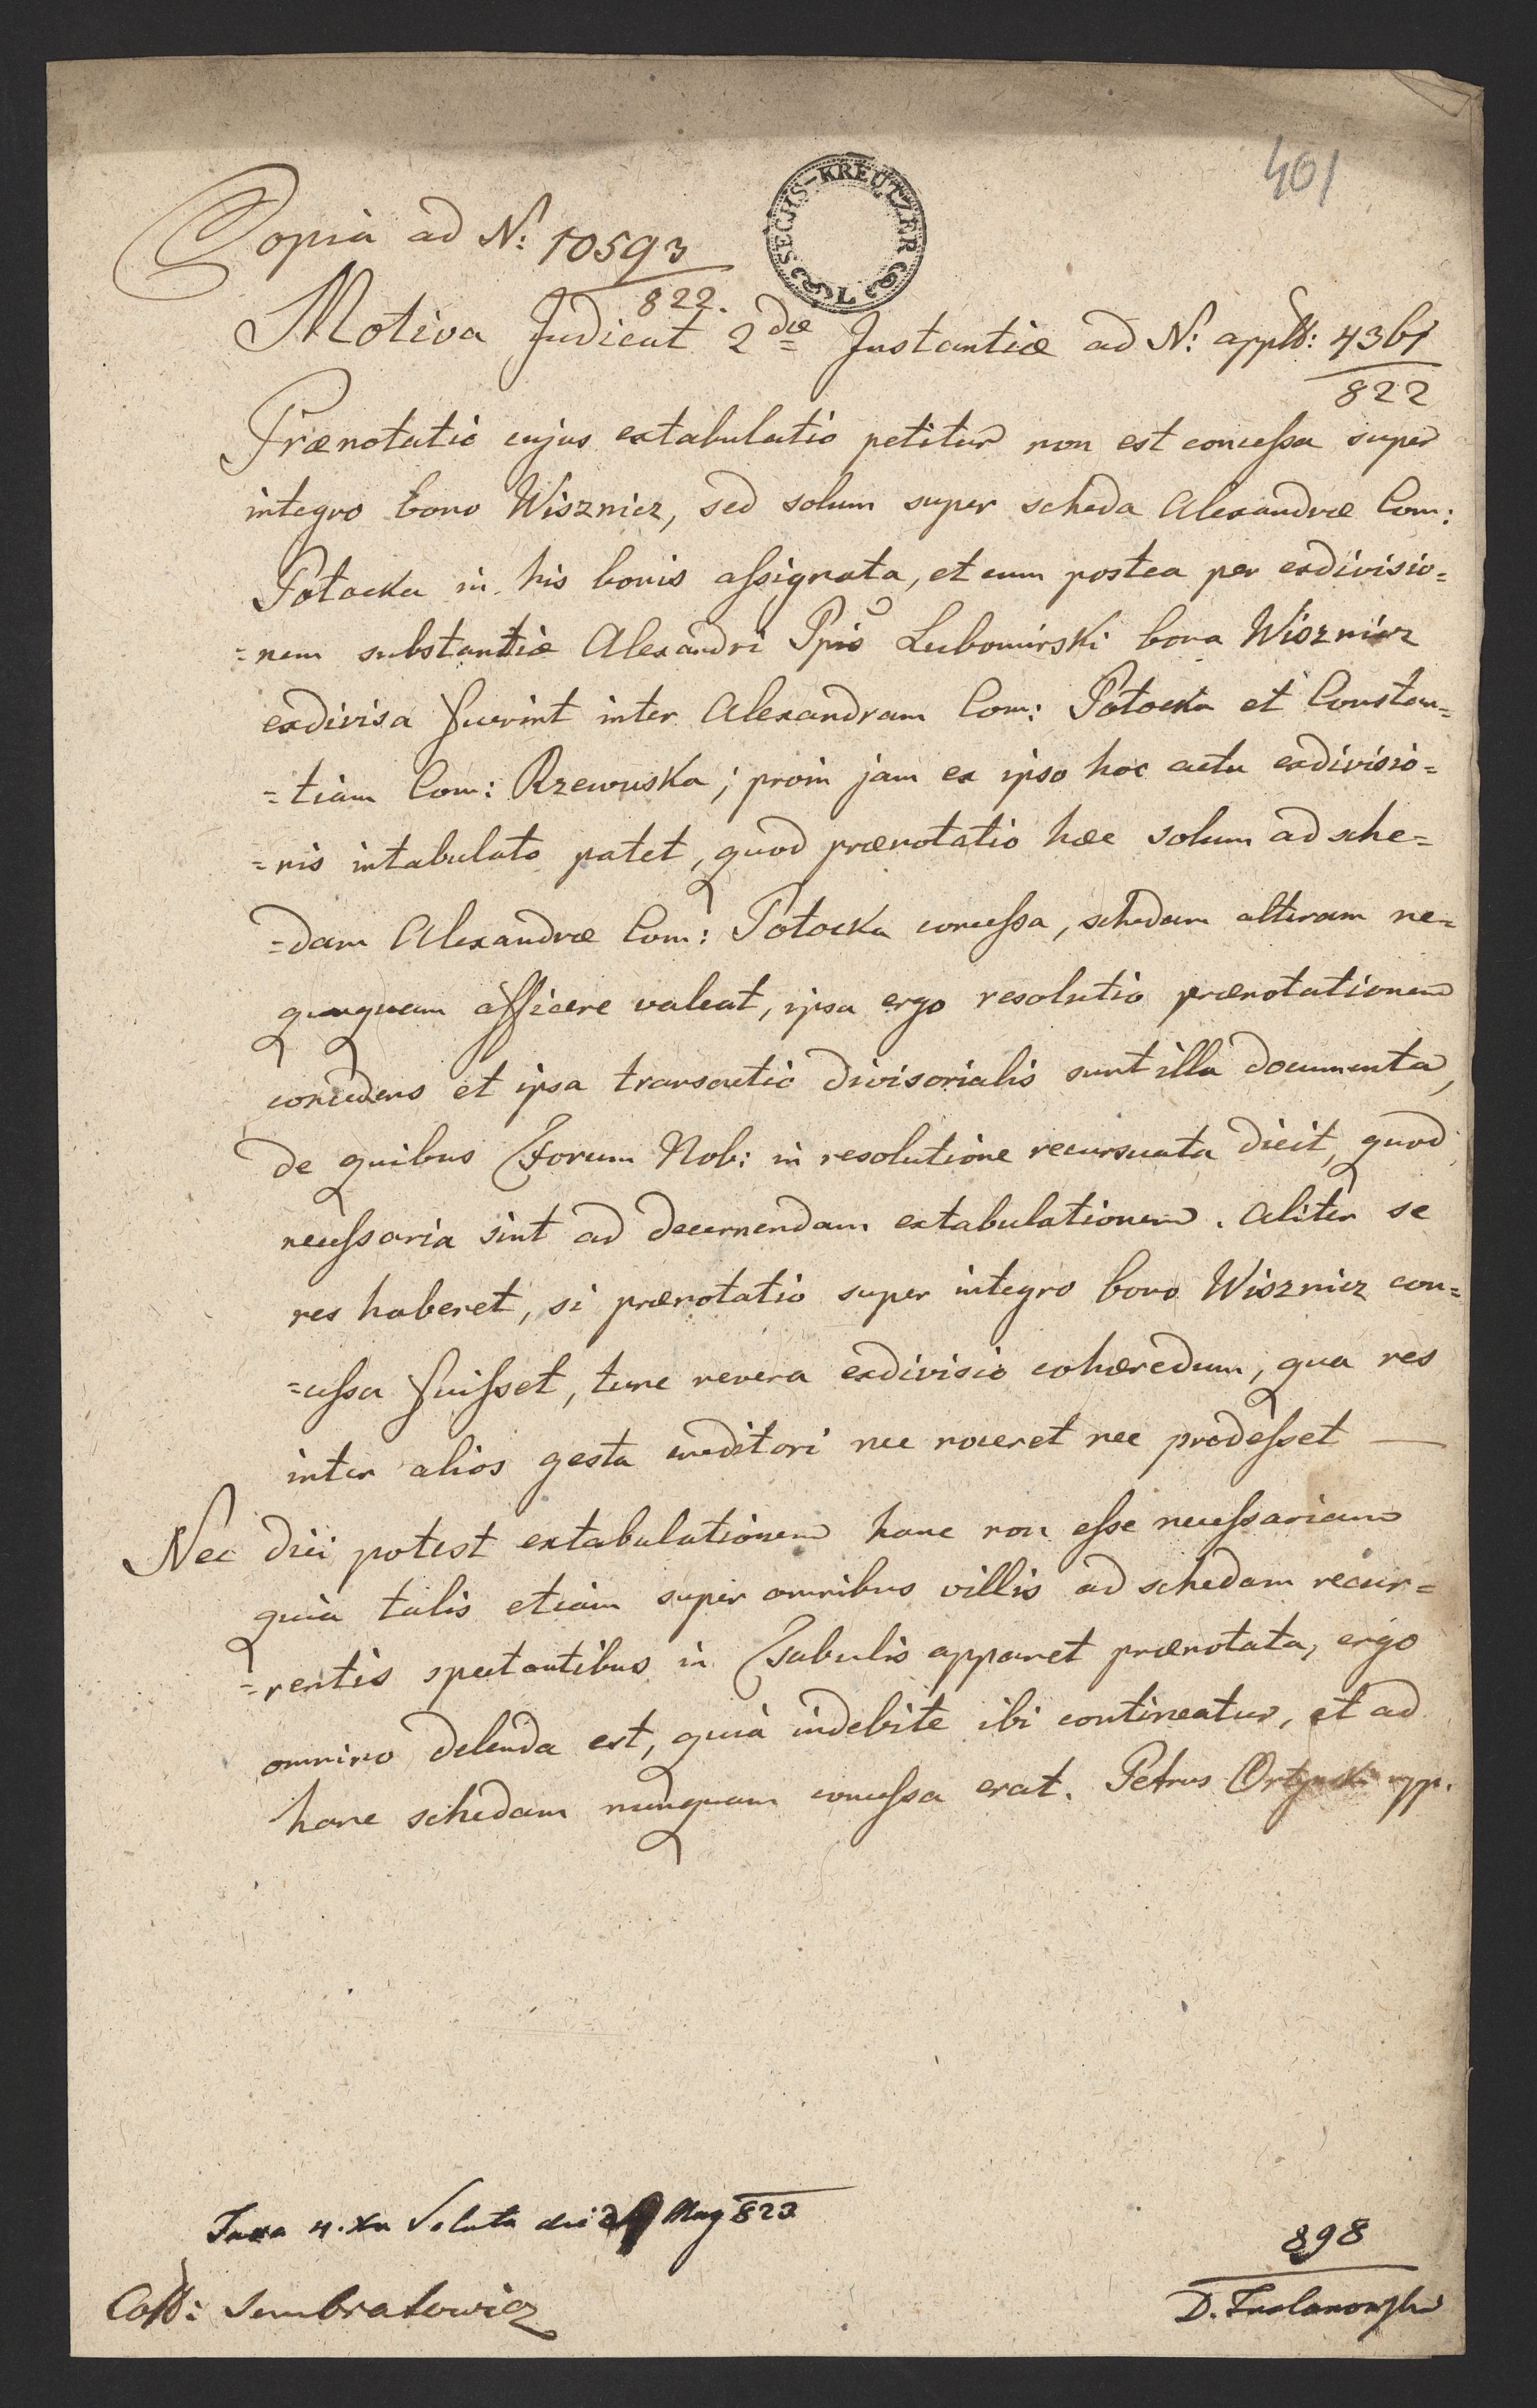 401
SECHS-KREUTZER
L
Copia ad N: 10593
822.
Motiva Judicat 2dæ Instantiæ ad N: appll: 4361
822
Prænotatio cujus extabulatio petitur non est concessa super
integro bono Wisznicz, sed solum super scheda Alexandræ Com:
Potocka in his bonis assignata, et cum postea per exdivisio=
=nem substantiæ Alexandri Ppis Lubomirski bona Wisznicz
exdivisa fuerint inter Alexandram Com: Potocka et Constan=
=tiam Com: Rzewuska; proin jam ex ipso hoc actu exdivisio=
=nis intabulato patet, quod prænotatio hæc solum ad sche=
=dam Alexandræ Com: Potocka concessa, schedam alteram ne=
quaquam afficere valeat, ipsa ergo resolutio prænotationem
concedens et ipsa transactio divisorialis sunt illa documenta,
de quibus Forum Nob: in resolutione recursuata dicit, quod
necessaria sint ad decernendam extabulationem. Aliter se
res haberet, si prænotatio super integro bono Wisznicz con=
=cessa fuisset, tunc revera exdivisio cohæredum, qua res
inter alios gesta creditori nec noceret nec prodesset —
Nec dici potest extabulationem hanc non esse necessariam
quia talis etiam super omnibus villis ad schedam recur=
=rentis spectantibus in Tabulis apparet prænotata, ergo
omnino delenda est, quia indebite ibi contineatur, et ad
hanc schedam nunquam concessa erat. Petrus Ortynski mpp.
Taxa 4. xr Soluta die Maij 823
898
Coll: Sembratowicz
D.